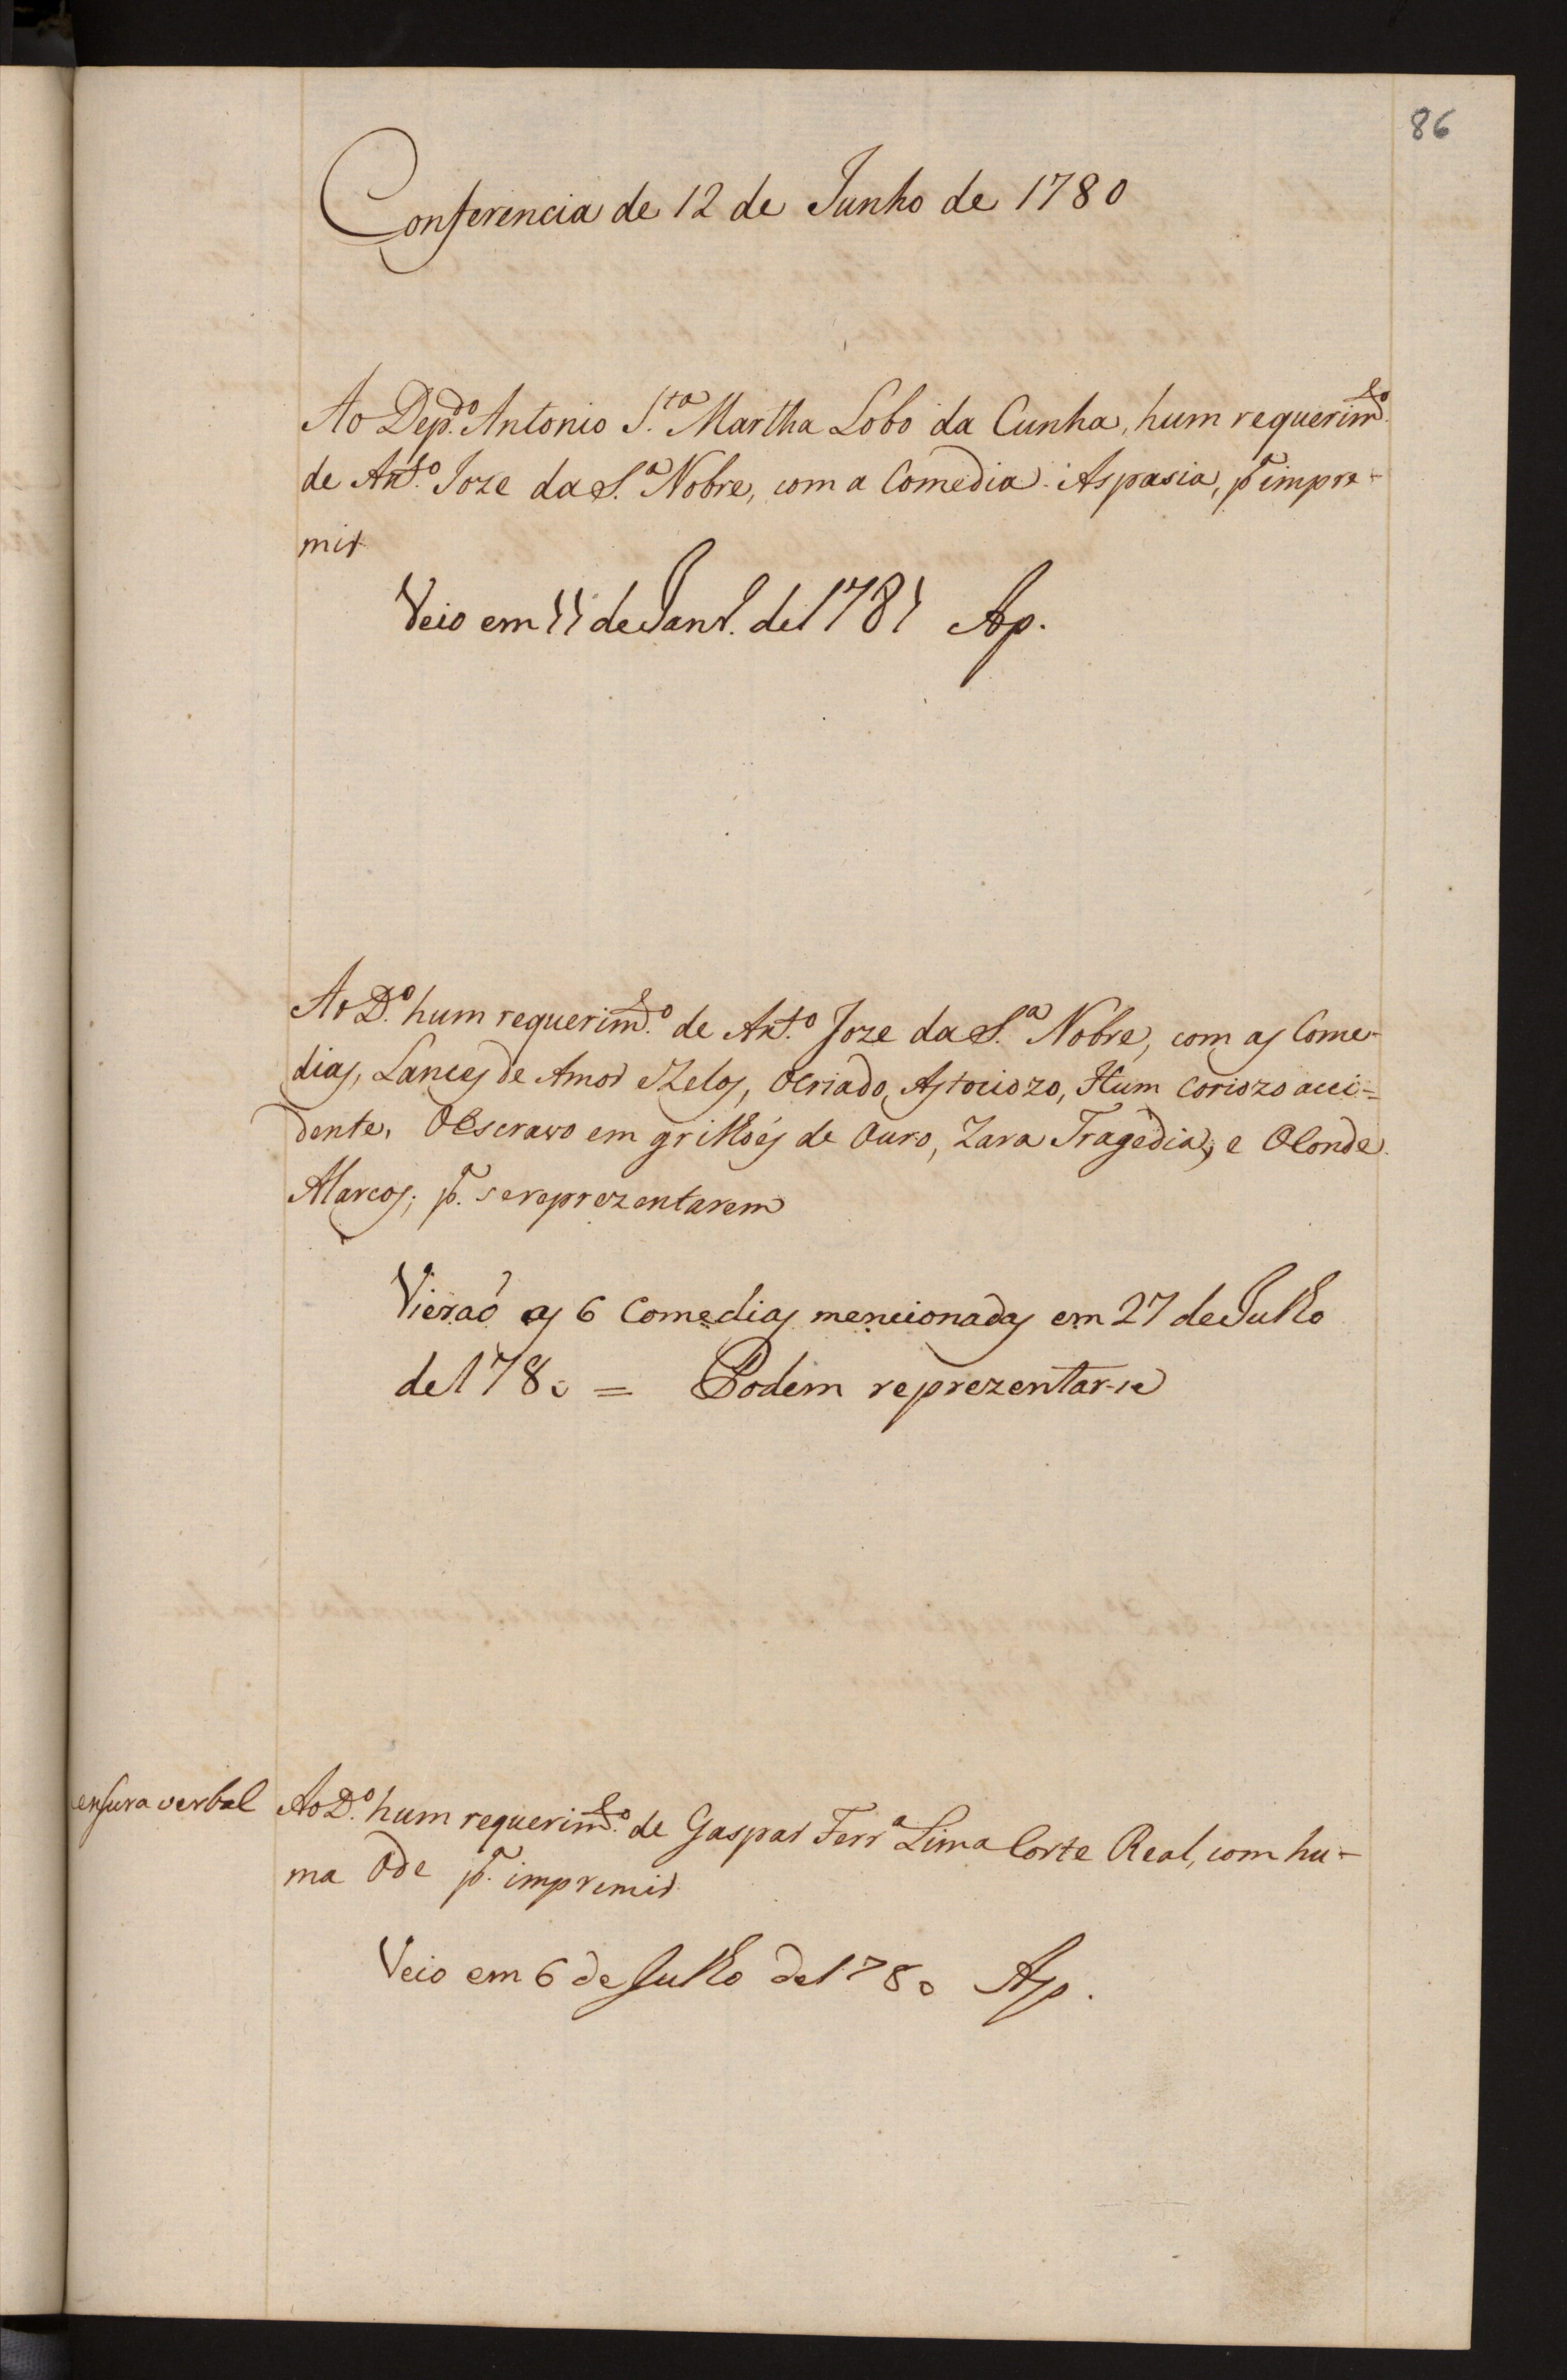 86
Conferencia de 12 de Junho de 1780
Ao Dep.do Antonio S.ta Martha Lobo da Cunha, hum requerim.to
de Ant.o Joze da S.a Nobre, com a Comedia: Aspasia, p.a impre-
mir
Veio em 11 de Janr. de 1781 Ap.
Ao D.o hum requerim.to de Ant.o Joze da S.a Nobre, com as Come-
dias, Lances de Amor e Zelos, O Criado, Astociozo, Hum Coriozo acci=
dente, O Escravo em grilhoés de Ouro, Zara Tragedia, e O Conde
Alarcos; p.a se reprezentarem
Vieraó as 6 Comedias mencionadas em 27 de Julho
de 1780 = Podem reprezentar-se
ensura verbal
Ao D.o hum requerim.to de Gaspar Ferr.a Lima Corte Real, com hu-
ma Ode p.a impremir
Veio em 6 de Julho de 1780 Ap.